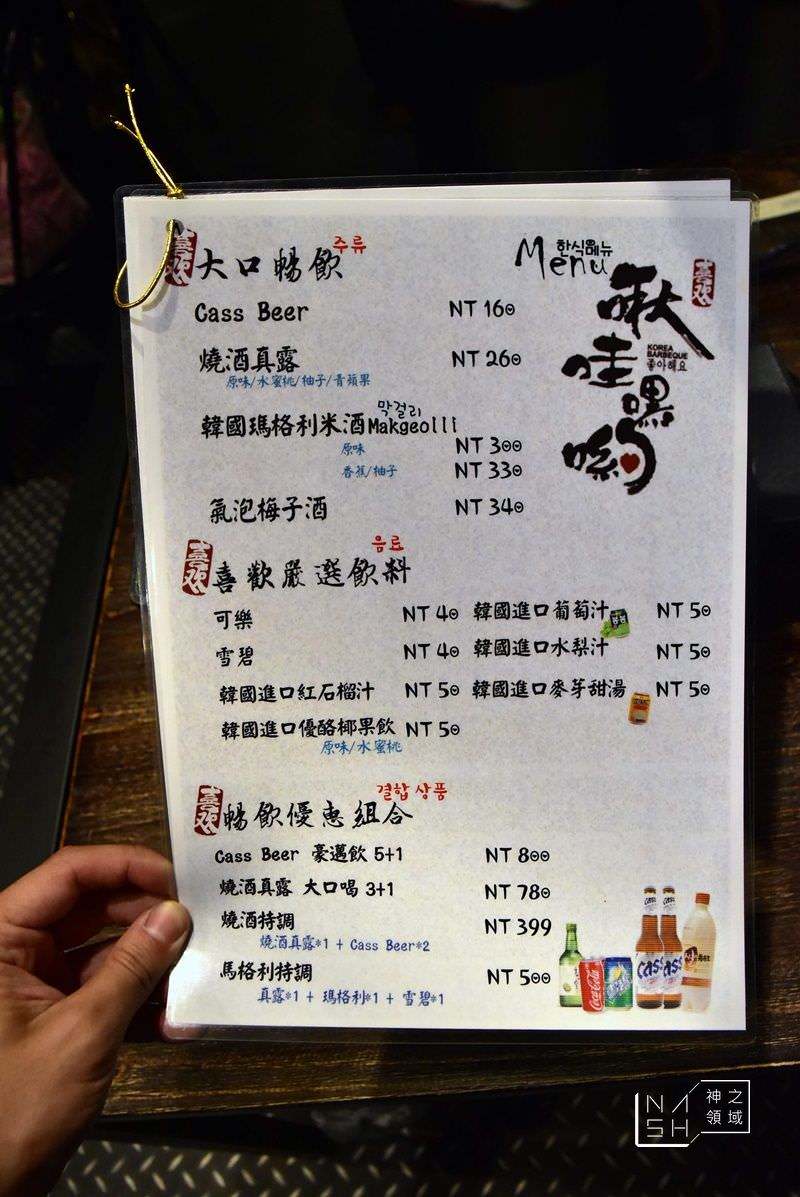 喜歡 大口暢飲 주류
Menu 한식메뉴
喜歡
啾哇嘿喲
KOREA
BARBEQUE
좋아해요
Cass Beer NT 160
燒酒真露 NT 260
原味/水蜜桃/柚子/青蘋果
막걸리
韓國瑪格利米酒Makgeolli
原味 NT 300
香蕉/柚子 NT 330
氣泡梅子酒 NT 340
喜歡 喜歡嚴選飲料 음료
可樂 NT 40 韓國進口葡萄汁 NT 50
雪碧 NT 40 韓國進口水梨汁 NT 50
韓國進口紅石榴汁 NT 50 韓國進口麥芽甜湯 NT 50
韓國進口優酪椰果飲 NT 50
原味/水蜜桃
喜歡 暢飲優惠組合 결합 상품
Cass Beer 豪邁飲 5+1 NT 800
燒酒真露 大口喝 3+1 NT 780
燒酒特調 NT 399
燒酒真露*1 + Cass Beer*2
馬格利特調 NT 500
真露*1 + 瑪格利*1 + 雪碧*1
Cass Cass
Coca-Cola
NASH 神之領域